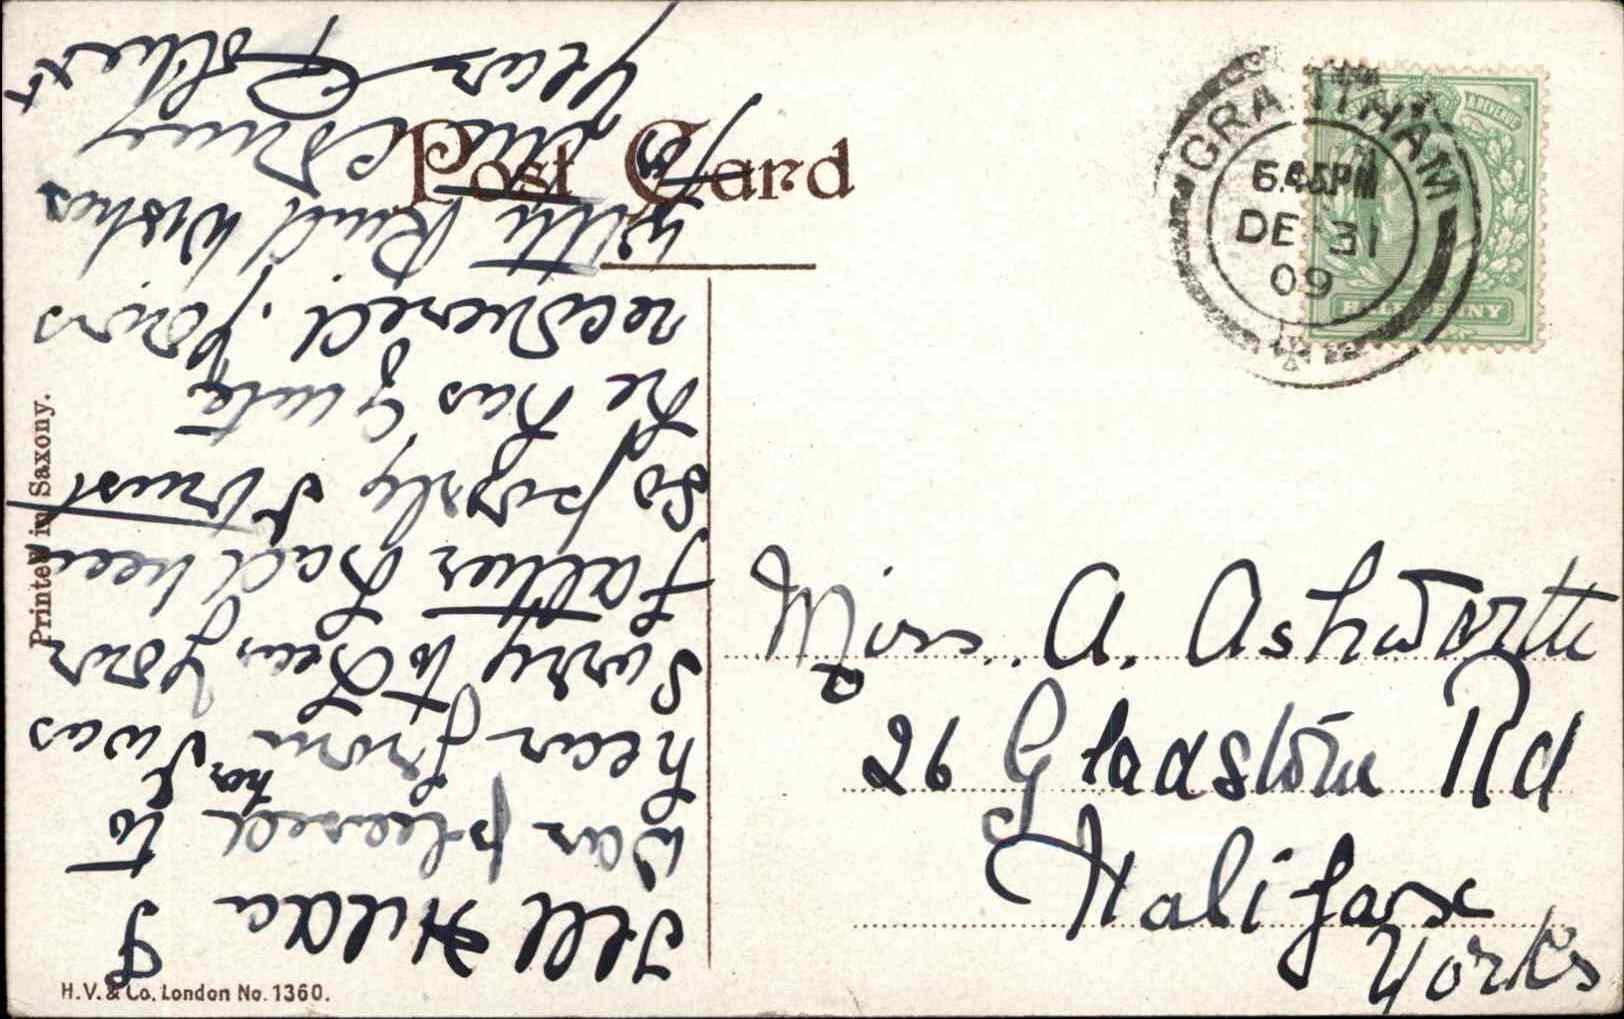 Post Card
GRANTHAM
6.45PM
DE 31
09
HALFPENNY
Miss. A. Ashworth
26 Gladstone Rd
Halifax
Yorks
Tell Hilda I
was pleased to
hear from her I was
sorry to hear your
father had been
so poorly I trust
he has quite
recovered. Yours
with Kind Wishes
for the
year
Printed in Saxony.
H.V. & Co. London No. 1360.